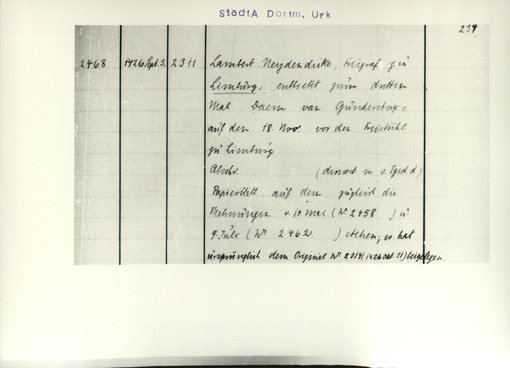 StadtA Dortm. Urk
234
2468 1426 Sept. 3. 2311 Lambert Neydendike, Freigraf zu
Limburg, entbietet zum dritten
Mal Daem van Gunderstorpe
auf den 18. Nov. vor den Freistuhl
zu Limburg
Abschr. (dinxed n. s. Egid d)
Papierblatt auf dem zugleich die
Mahnungen v. 14 Mai (Nº 2458 ) u.
9. Juli (Nº 2462. ) stehen; es hat
ursprünglich dem Original Nº 2314 (1426 Okt. 31) beigelegen.